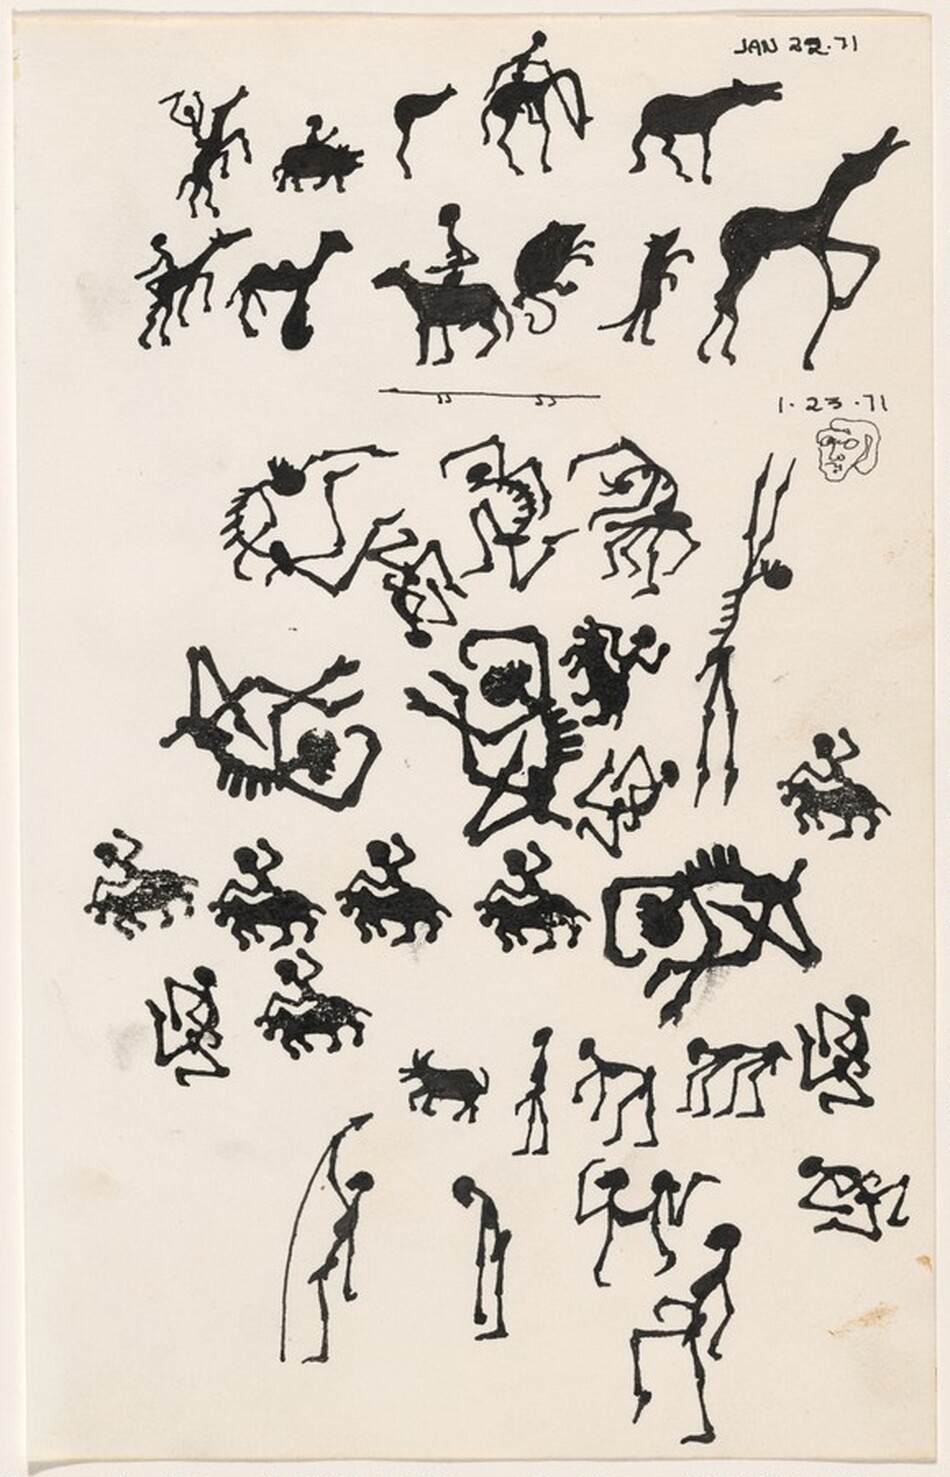 JAN 22.71
1.23.71